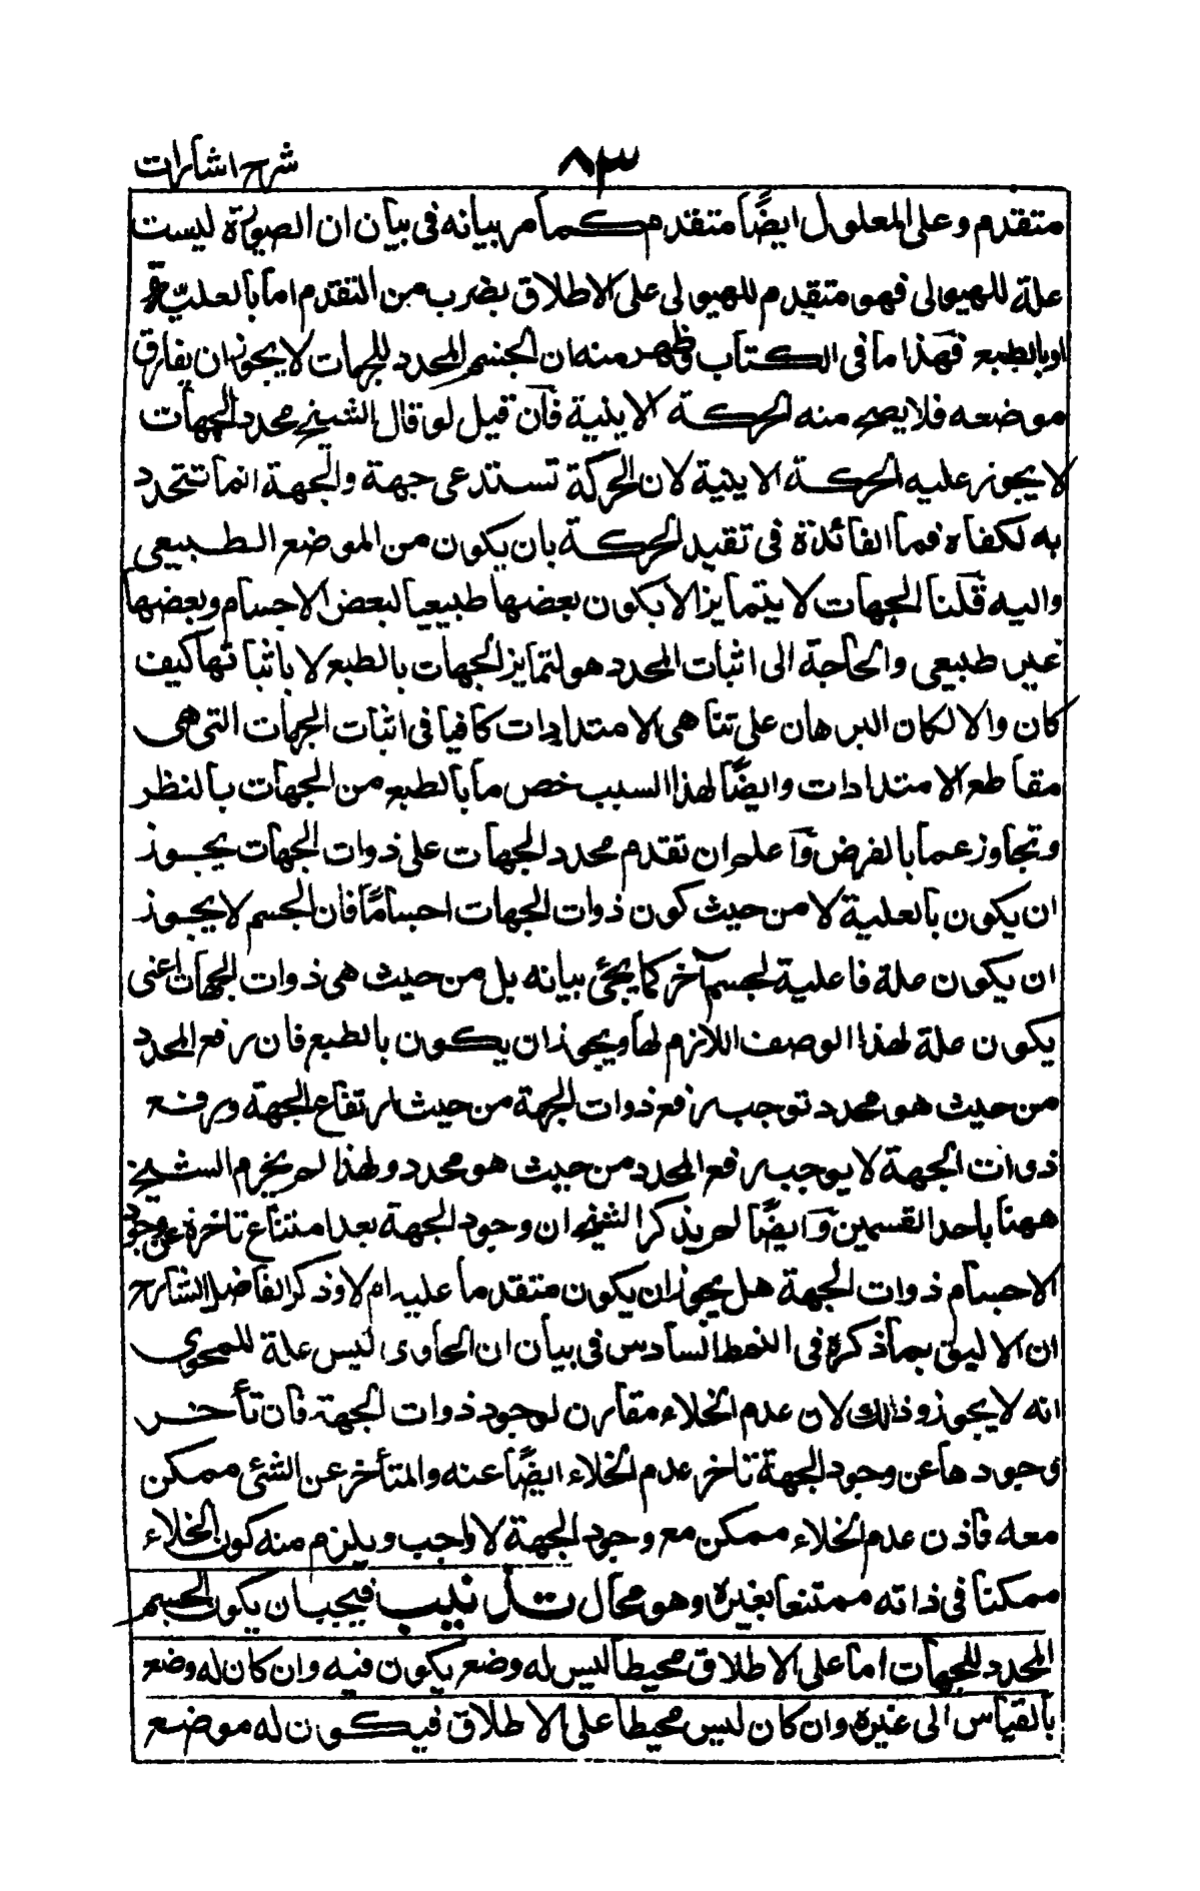 ٨٣
شرح اشارات
متقدم وعلى المعلول ايضًا متقدم كما مر بيانه فى بيان ان الصورة ليست
علة للهيولى فهو متقدم للهيولى على الاطلاق بضرب من التقدم اما بالعلية
او بالطبع فهذا ما فى الكتاب وظهر منه ان الجسم المحدد للجهات لا يجوز ان يفارق
موضعه فلا يصح منه الحركة الاينية فان قيل لو قال الشيخ محدد الجهات
لا يجوز عليه الحركة الاينية لان الحركة تستدعى جهة والجهة انما تتحدد
به لكفاه فما الفائدة فى تقيد الحركة بان يكون من الموضع الطبيعى
واليه قلنا الجهات لا يتمايز الا بكون بعضها طبيعيا لبعض الاجسام وبعضها
غير طبيعى والحاجة الى اثبات المحدد هو لتمايز الجهات بالطبع لا باثباتها كيف
كان والا لكان البرهان على تناهى الامتدادات كافيا فى اثبات الجهات التى هى
مقاطع الامتدادات وايضًا لهذا السبب خص ما بالطبع من الجهات بالنظر
وتجاوز عما بالفرض واعلم ان تقدم محدد الجهات على ذوات الجهات يجوز
ان يكون بالعلية لا من حيث كون ذوات الجهات اجسامًا فان الجسم لا يجوز
ان يكون علة فاعلية لجسم آخر كما يجئ بيانه بل من حيث هى ذوات الجهات اعنى
يكون علة لهذا الوصف اللازم لها ويجوز ان يكون بالطبع فان رفع المحدد
من حيث هو محدد توجب رفع ذوات الجهة من حيث ارتفاع الجهة ورفع
ذوات الجهة لا يوجب رفع المحدد من حيث هو محدد ولهذا لم يجزم الشيخ
ههنا باحد القسمين وايضًا لم يذكر الشيخ ان وجود الجهة بعد امتناع تاخره عن وجود
الاجسام ذوات الجهة هل يجوز ان يكون متقدما عليه ام لا وذكر الفاضل الشارح
ان الاليق بما ذكره فى النمط السادس فى بيان ان الحاوى ليس علة للمحوى
انه لا يجوز وذلك لان عدم الخلاء مقارن لوجود ذوات الجهة فان تأخر
وجودها عن وجود الجهة تاخر عدم الخلاء ايضًا عنه والمتأخر عن الشئ ممكن
معه فاذن عدم الخلاء ممكن مع وجود الجهة لا واجب ويلزم منه كون الخلاء
ممكنا فى ذاته ممتنعا بغيره وهو محال تذنيب فيجب ان يكون الجسم
المحدد للجهات اما على الاطلاق محيطا ليس له وضع يكون فيه وان كان له وضع
بالقياس الى غيره وان كان ليس محيطا على الاطلاق فيكون له موضع